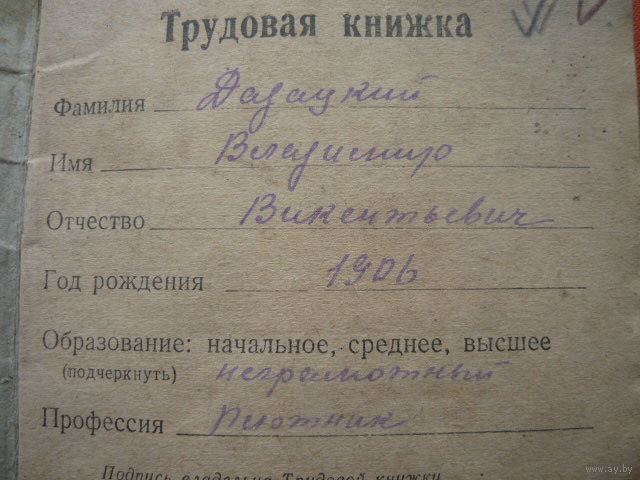 Трудовая книжка
Фамилия Дазацкий
Имя Владимир
Отчество Викентьевич
Год рождения 1906
Образование: начальное, среднее, высшее
(подчеркнуть) неграмотный
Профессия Плотник
Подпись владельца Трудовой книжки
www.ay.by